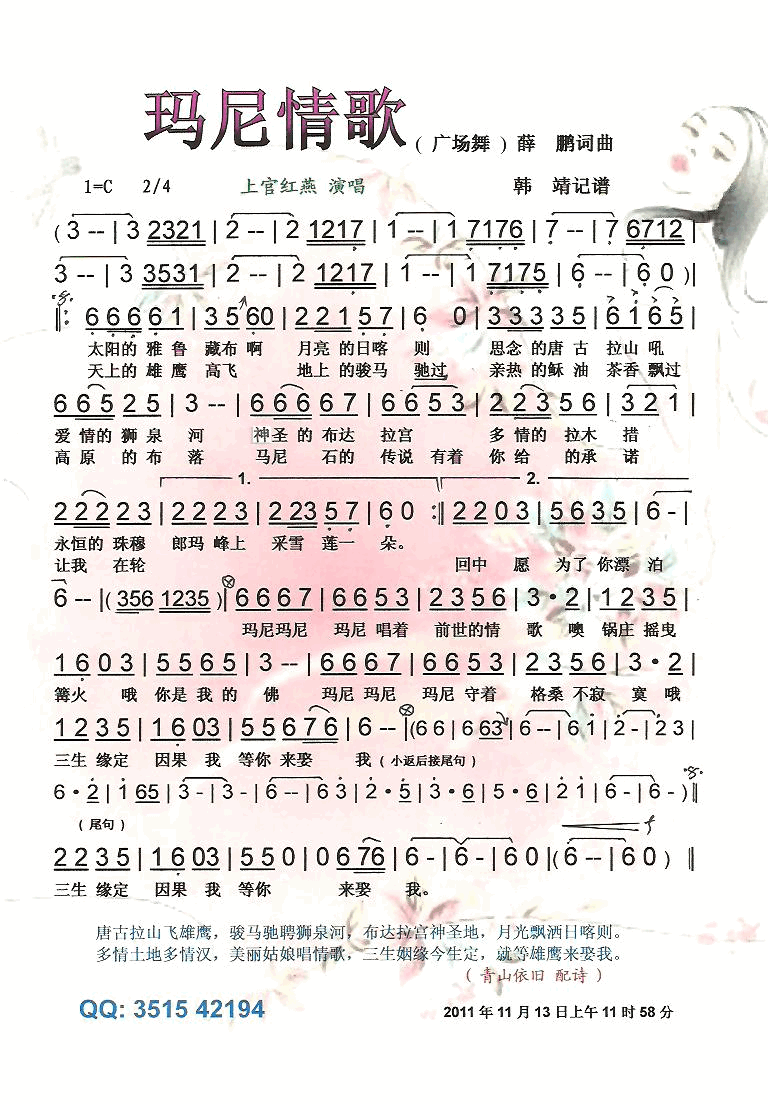 玛尼情歌 ( 广场舞 ) 薛 鹏词曲
1=C 2/4 上官红燕 演唱 韩 靖记谱
( 3 -- | 3 2321 | 2 -- | 2 1217 | 1 -- | 1 7176 | 7 -- | 7 6712 |
3 -- | 3 3531 | 2 -- | 2 1217 | 1 -- | 1 7175 | 6 -- | 6 0 )|
6 6 6 6 1 | 3 5 6 0 | 2 2 1 5 7 | 6 0 | 3 3 3 3 5 | 6 1 6 5 |
太阳的 雅 鲁 藏布 啊 月亮 的日喀 则 思念 的唐 古 拉山 吼
天上的 雄 鹰 高飞 地上 的骏马 驰过 亲热 的稣 油 茶香 飘过
6 6 5 2 5 | 3 -- | 6 6 6 6 7 | 6 6 5 3 | 2 2 3 5 6 | 3 2 1 |
爱 情的 狮 泉 河 神圣 的 布达 拉宫 多 情的 拉木 措
高 原 的 布 落 马尼 石的 传说 有着 你 给 的承 诺
1. 2.
2 2 2 2 3 | 2 2 2 3 | 2 23 5 7 | 6 0 :‖ 2 2 0 3 | 5 6 3 5 | 6 - |
永恒的 珠穆 郎玛 峰上 采雪 莲一 朵。
让我 在轮 回中 愿 为了 你漂 泊
6 -- |( 356 1235 )| 6 6 6 7 | 6 6 5 3 | 2 3 5 6 | 3 • 2 | 1 2 3 5 |
玛尼玛尼 玛尼 唱着 前世的情 歌 噢 锅庄 摇曳
1 6 0 3 | 5 5 6 5 | 3 -- | 6 6 6 7 | 6 6 5 3 | 2 3 5 6 | 3 • 2 |
篝火 哦 你是 我 的 佛 玛尼 玛尼 玛尼 守着 格桑 不寂 寞 哦
1 2 2 3 | 1 6 03 | 5 5 6 7 6 | 6 -- |(6 6 | 6 63 | 6 -- | 6 1 | 2 - | 2 3 |
三生 缘定 因果 我 等你 来娶 我 ( 小返后接尾句 )
6 • 2 | 1 65 | 3 - | 3 - | 6 -- | 6 3 | 2 • 5 | 3 • 6 | 5 • 6 | 2 1 | 6 -- | 6 - )‖
( 尾句 )
2 2 3 5 | 1 6 03 | 5 5 0 | 0 6 76 | 6 - | 6 - | 6 0 |( 6 -- | 6 0 ) ‖
三生 缘定 因果 我 等你 来娶 我。
唐古拉山飞雄鹰，骏马驰聘狮泉河，布达拉宫神圣地，月光飘洒日喀则。
多情土地多情汉，美丽姑娘唱情歌，三生姻缘今生定，就等雄鹰来娶我。
( 青山依旧 配诗 )
QQ: 3515 42194 2011 年 11 月 13 日上午 11 时 58 分